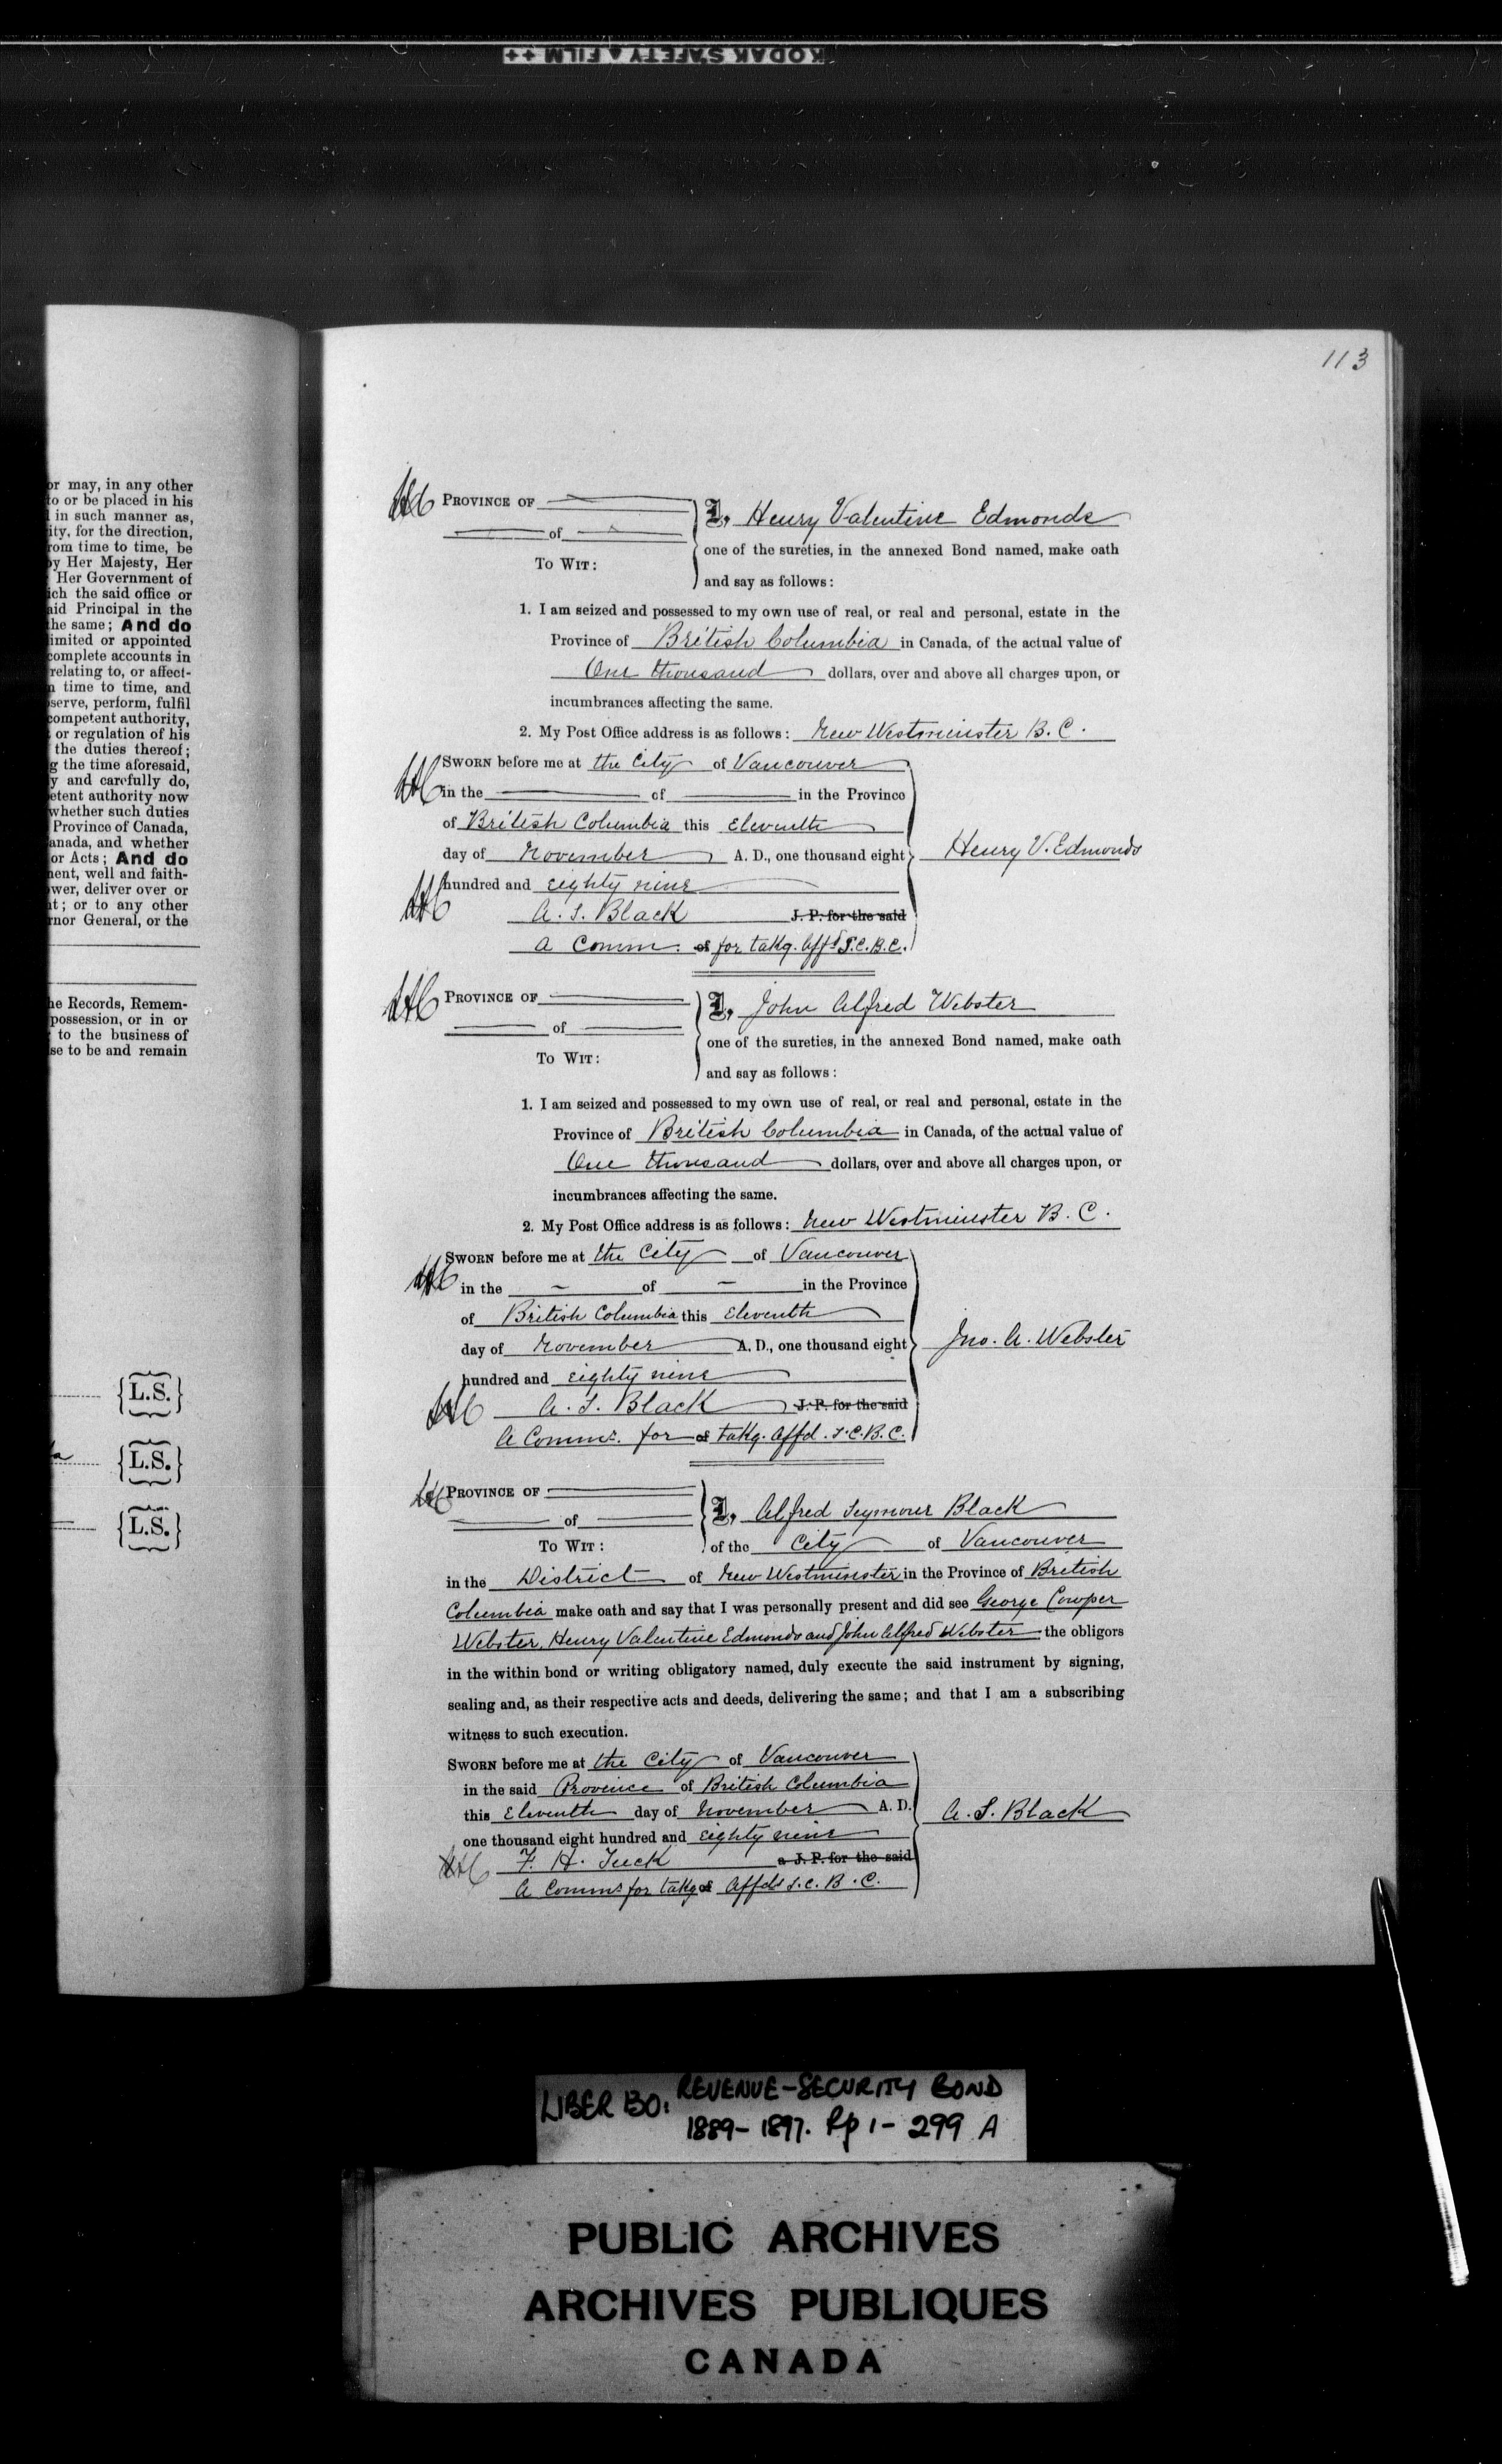 KODAK SAFETY FILM ++
113
or may, in any other
to or be placed in his
in such manner as,
ity, for the direction,
rom time to time, be
by Her Majesty, Her
Her Government of
ich the said office or
aid Principal in the
the same; And do
limited or appointed
complete accounts in
relating to, or affect-
n time to time, and
serve, perform, fulfil
competent authority,
or regulation of his
the duties thereof;
g the time aforesaid,
y and carefully do,
etent authority now
whether such duties
Province of Canada,
anada, and whether
or Acts; And do
nent, well and faith-
wer, deliver over or
it; or to any other
nor General, or the
he Records, Remem-
possession, or in or
to the business of
se to be and remain
{L.S.}
{L.S.}
{L.S.}
PROVINCE OF
of
TO WIT:
I, Henry Valentine Edmonds
one of the sureties, in the annexed Bond named, make oath
and say as follows:
1. I am seized and possessed to my own use of real, or real and personal, estate in the
Province of British Columbia in Canada, of the actual value of
One thousand dollars, over and above all charges upon, or
incumbrances affecting the same.
2. My Post Office address is as follows: New Westminster B.C.
SWORN before me at the City of Vancouver
in the of in the Province
of British Columbia this Eleventh
day of November A. D., one thousand eight
hundred and eighty nine
Henry V. Edmonds
A. S. Black J. P. for the said
a Comm. of for takg. affds S.C.B.C.
PROVINCE OF
of
TO WIT:
I, John Alfred Webster
one of the sureties, in the annexed Bond named, make oath
and say as follows:
1. I am seized and possessed to my own use of real, or real and personal, estate in the
Province of British Columbia in Canada, of the actual value of
One thousand dollars, over and above all charges upon, or
incumbrances affecting the same.
2. My Post Office address is as follows: New Westminster B.C.
SWORN before me at the City of Vancouver
in the of in the Province
of British Columbia this Eleventh
day of November A. D., one thousand eight
hundred and eighty nine
Jno. A. Webster
A. S. Black J. P. for the said
A Commr. for of takg. affd. S.C.B.C.
PROVINCE OF
of
TO WIT:
I, Alfred Seymour Black
of the City of Vancouver
in the District of New Westminster in the Province of British
Columbia make oath and say that I was personally present and did see George Cowper
Webster, Henry Valentine Edmonds and John Alfred Webster the obligors
in the within bond or writing obligatory named, duly execute the said instrument by signing,
sealing and, as their respective acts and deeds, delivering the same; and that I am a subscribing
witness to such execution.
SWORN before me at the City of Vancouver
in the said Province of British Columbia
this Eleventh day of November A. D.
one thousand eight hundred and eighty nine
A. S. Black
F. H. Tuck a J. P. for the said
A Commr for takg of Affds S.C.B.C.
LIBER 130: REVENUE-SECURITY BOND
1889-1897. Pp 1-299 A
PUBLIC ARCHIVES
ARCHIVES PUBLIQUES
CANADA